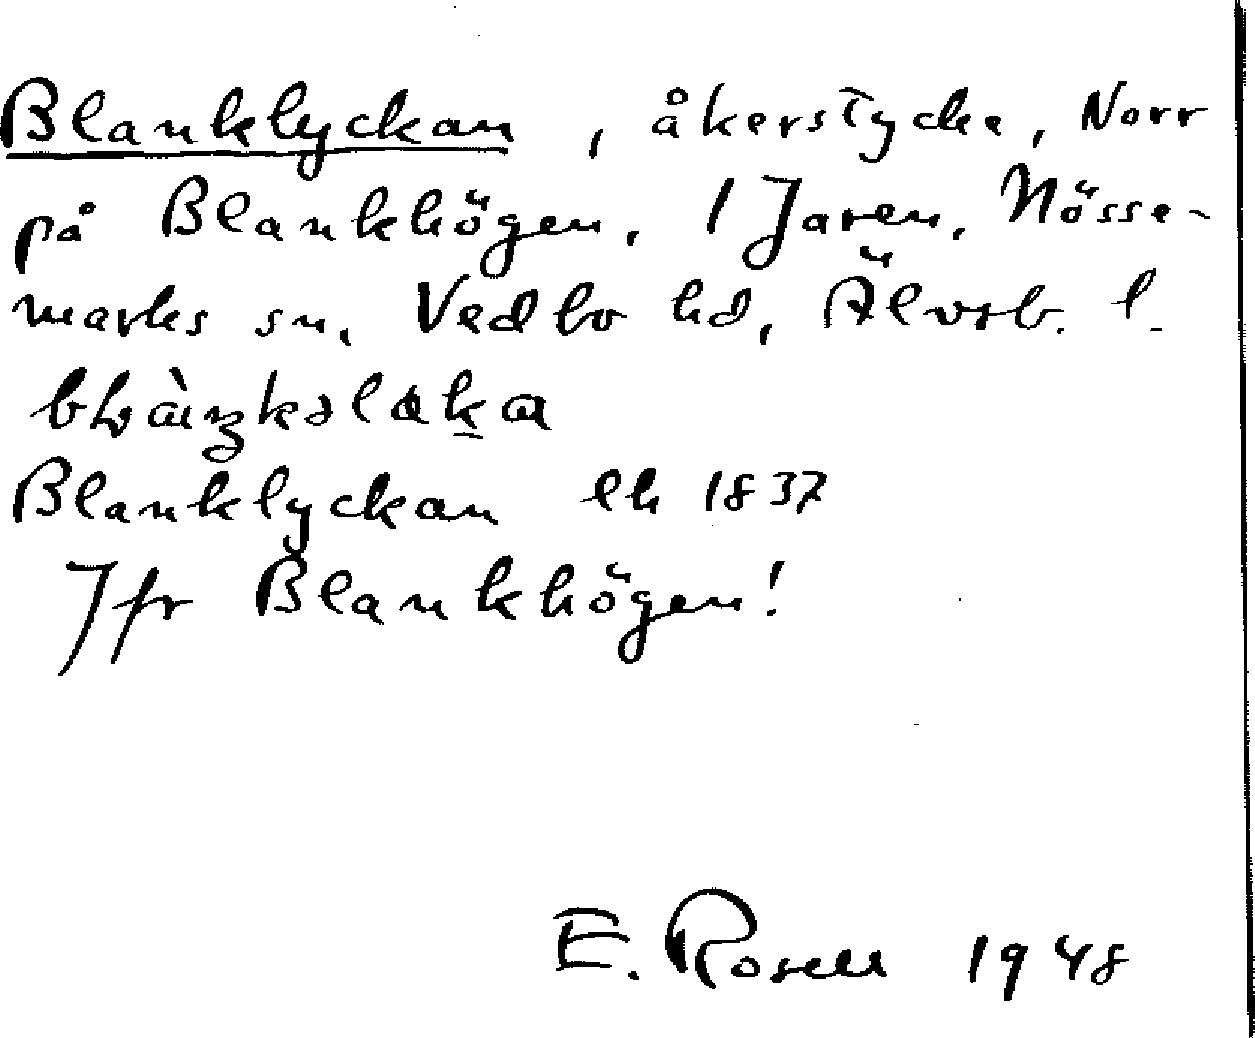 Blanklyckan, åkerstycke, Norr
på Blankhögen, 1 Jaren, Nösse-
marks sn, Vedbo hd, Älvsb. l.
Blanklyckan lh 1837
Jfr Blankhögen!
E. Rosell 1948